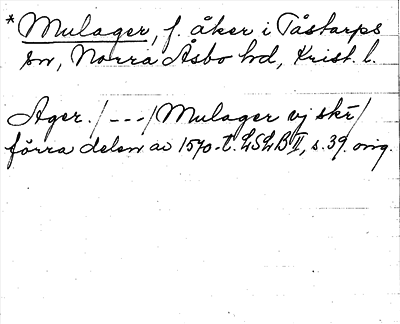 * Mulager, f. åker i Tåstarps
sn, Norra Åsbo hd, Krist. l.
Ager. / - - - / Mulager vj skr /
förra delen av 1570-t. LSLB II, s. 39. orig.